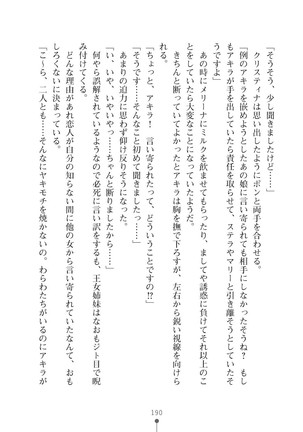 「そうそう、少し聞きましたけど……」
クリスティナは思い出したようにポンと両手を合わせる。
「例のアキラを嵌めようとしたあの娘に言い寄られても相手にしなかったそうね？　もし
もアキラが手を出していたら責任を取らせて、ステラやマリーと引き離そうとしていたそ
うですよ」
あの時にメリーナにミルクを飲ませてもらったり、ましてや誘惑に負けてそれ以上のこ
とをしていたら大変なことになっていたのか。
きちんと断っていてよかったとアキラは胸を撫で下ろすが、左右から鋭い視線を向けら
れる。
「ちょっと、アキラ！　言い寄られたって、どういうことですの⁉」
「そうです……そんなこと聞いてませんよっ……」
あまりの迫力に思わず仰け反りそうになった。
「い、いや、いやいやっ……ちゃんと断りましたから……」
何やら誤解されそうなので必死に言い訳をするが、王女姉妹はなおもジト目で睨
み付けてくる。
どんな理由があれ恋人が自分の知らない間に他の女から言い寄られていたなんて、おも
しろくないに決まっている。
「こ〜ら、二人とも……そんなにヤキモチを焼かないの。わらわたちがいるのにアキラが
190